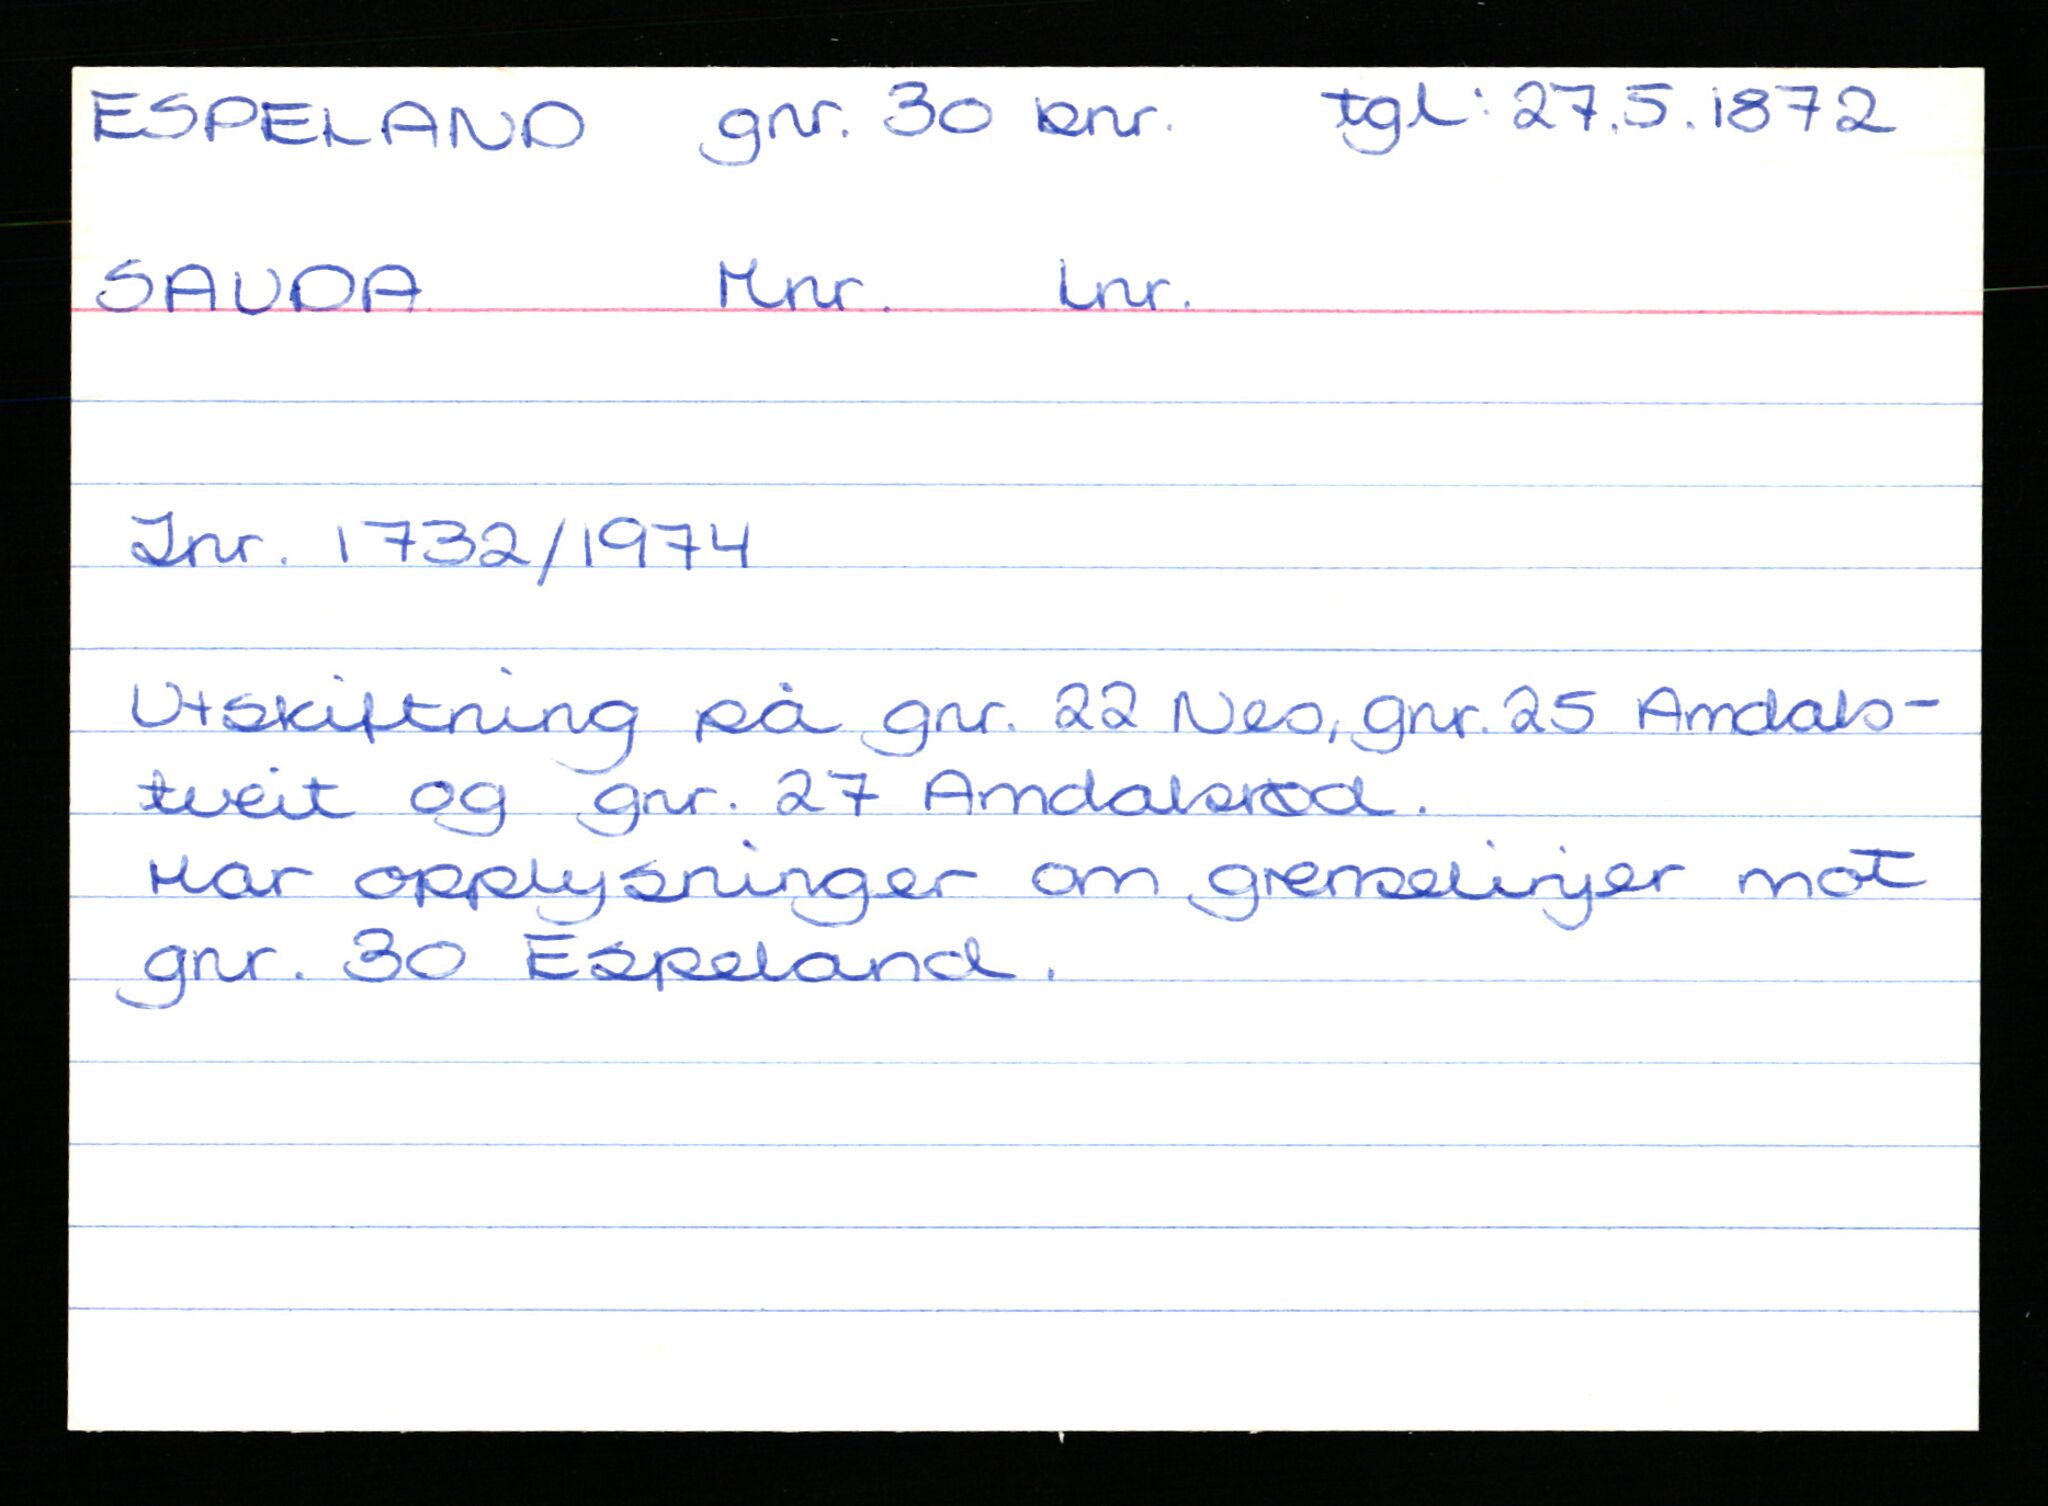 ESPELAND gnr. 30 bnr. tgl: 27.5.1872
SAUDA Mnr. Lnr.
Jnr. 1732/1974
Utskiftning på gnr. 22 Nes, gnr. 25 Amdals-
tveit og gnr. 27 Amdalsrød.
Har opplysninger om grenselinjer mot
gnr. 30 Espeland.